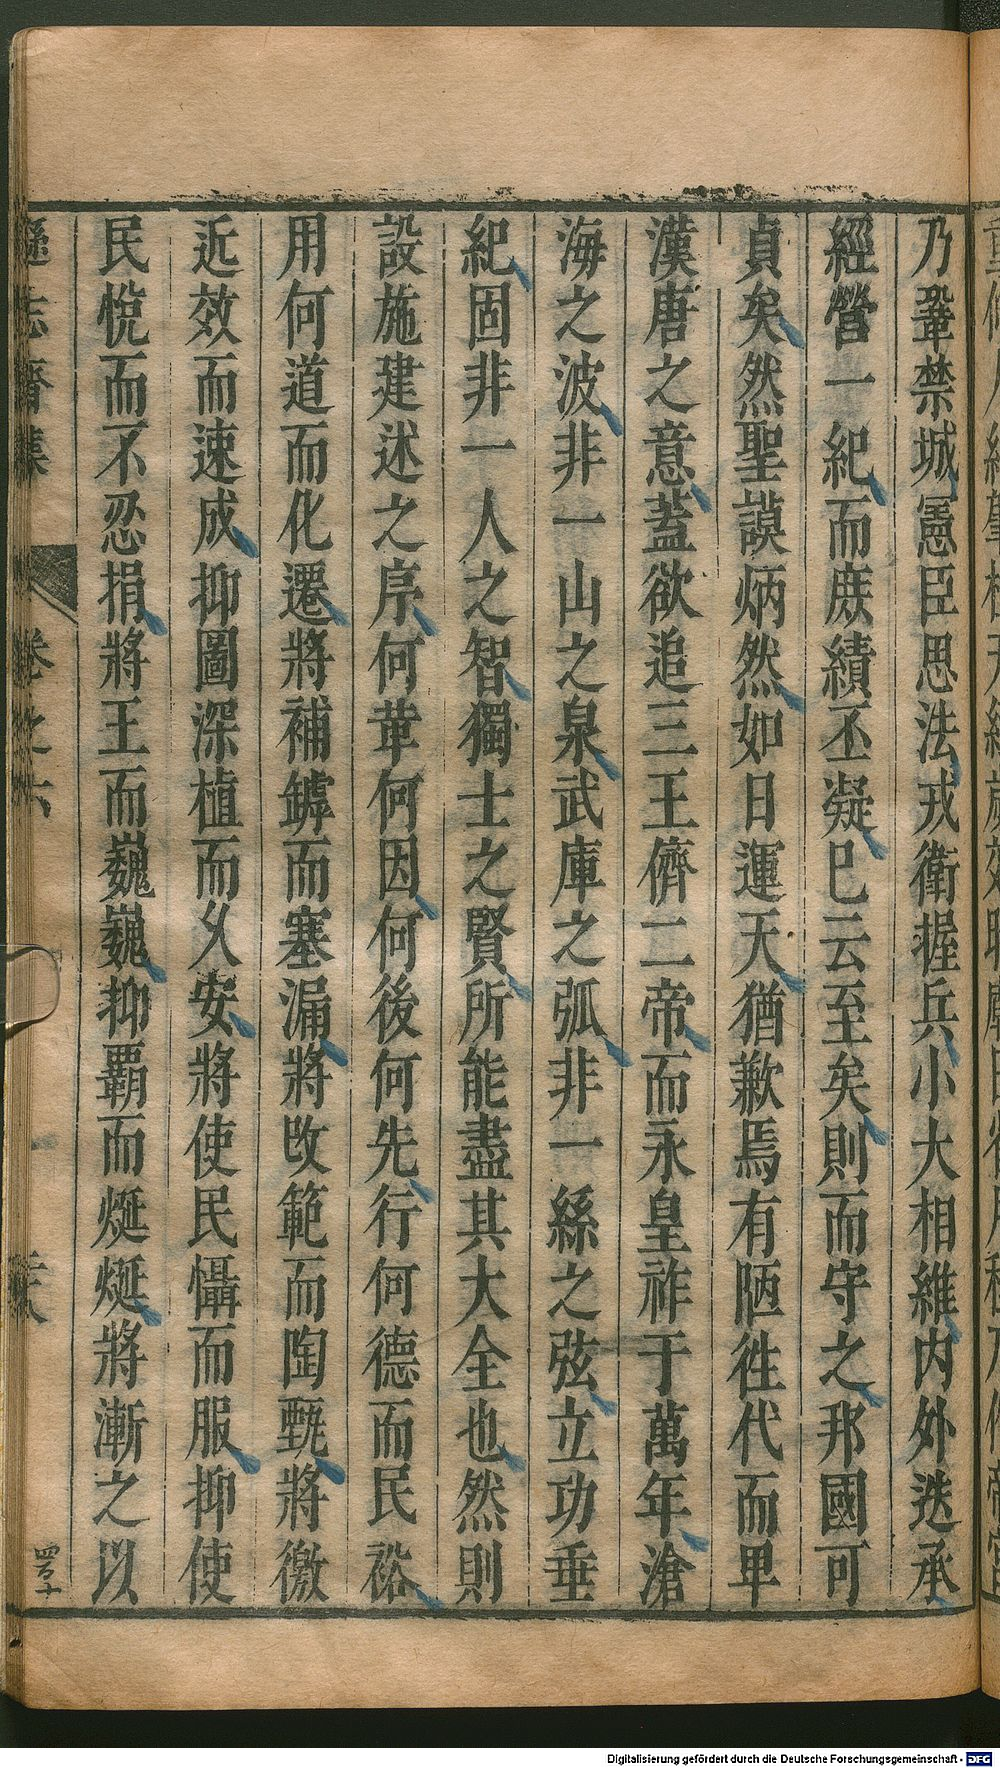 乃鞏禁城憲臣思法戎衛握兵小大相維内外迭承
經營一紀而庶績丕凝巳云至矣則而守之邦國可
貞矣然聖謨炳然如日運天猶歉焉有陋徃代而卑
漢唐之意蓋欲追三王儕二帝而永皇祚于萬年滄
海之波非一山之泉武庫之弧非一絲之弦立功垂
紀固非一人之智獨士之賢所能盡其大全也然則
設施建述之序何革何因何後何先行何德而民裕
用何道而化遷將補罅而塞漏將改範而陶甄將徼
近效而速成抑圖深植而久安將使民懾而服抑使
民悅而不忍捐將王而巍巍抑覇而烻烻將漸之以
遜志齋集
卷之六
Digitalisierung gefördert durch die Deutsche Forschungsgemeinschaft - DFG